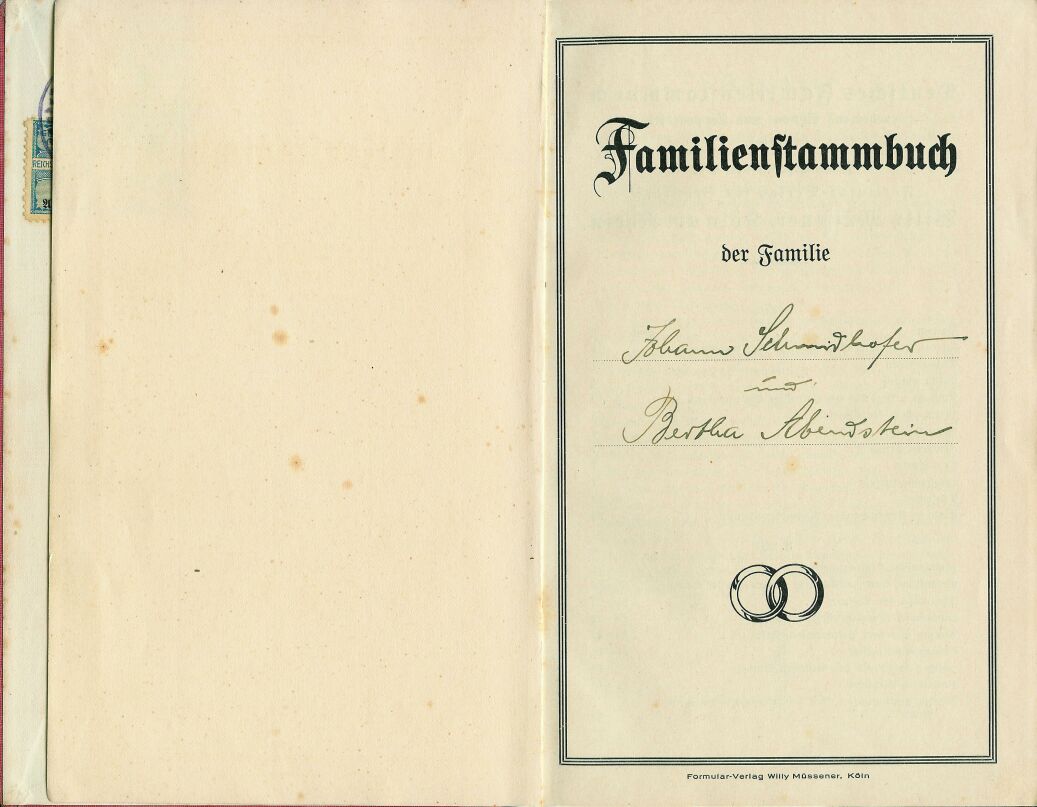 REICHS
Familienstammbuch
der Familie
Johann Schmidhofer
und
Bertha Abendstein
Formular-Verlag Willy Müssener, Köln